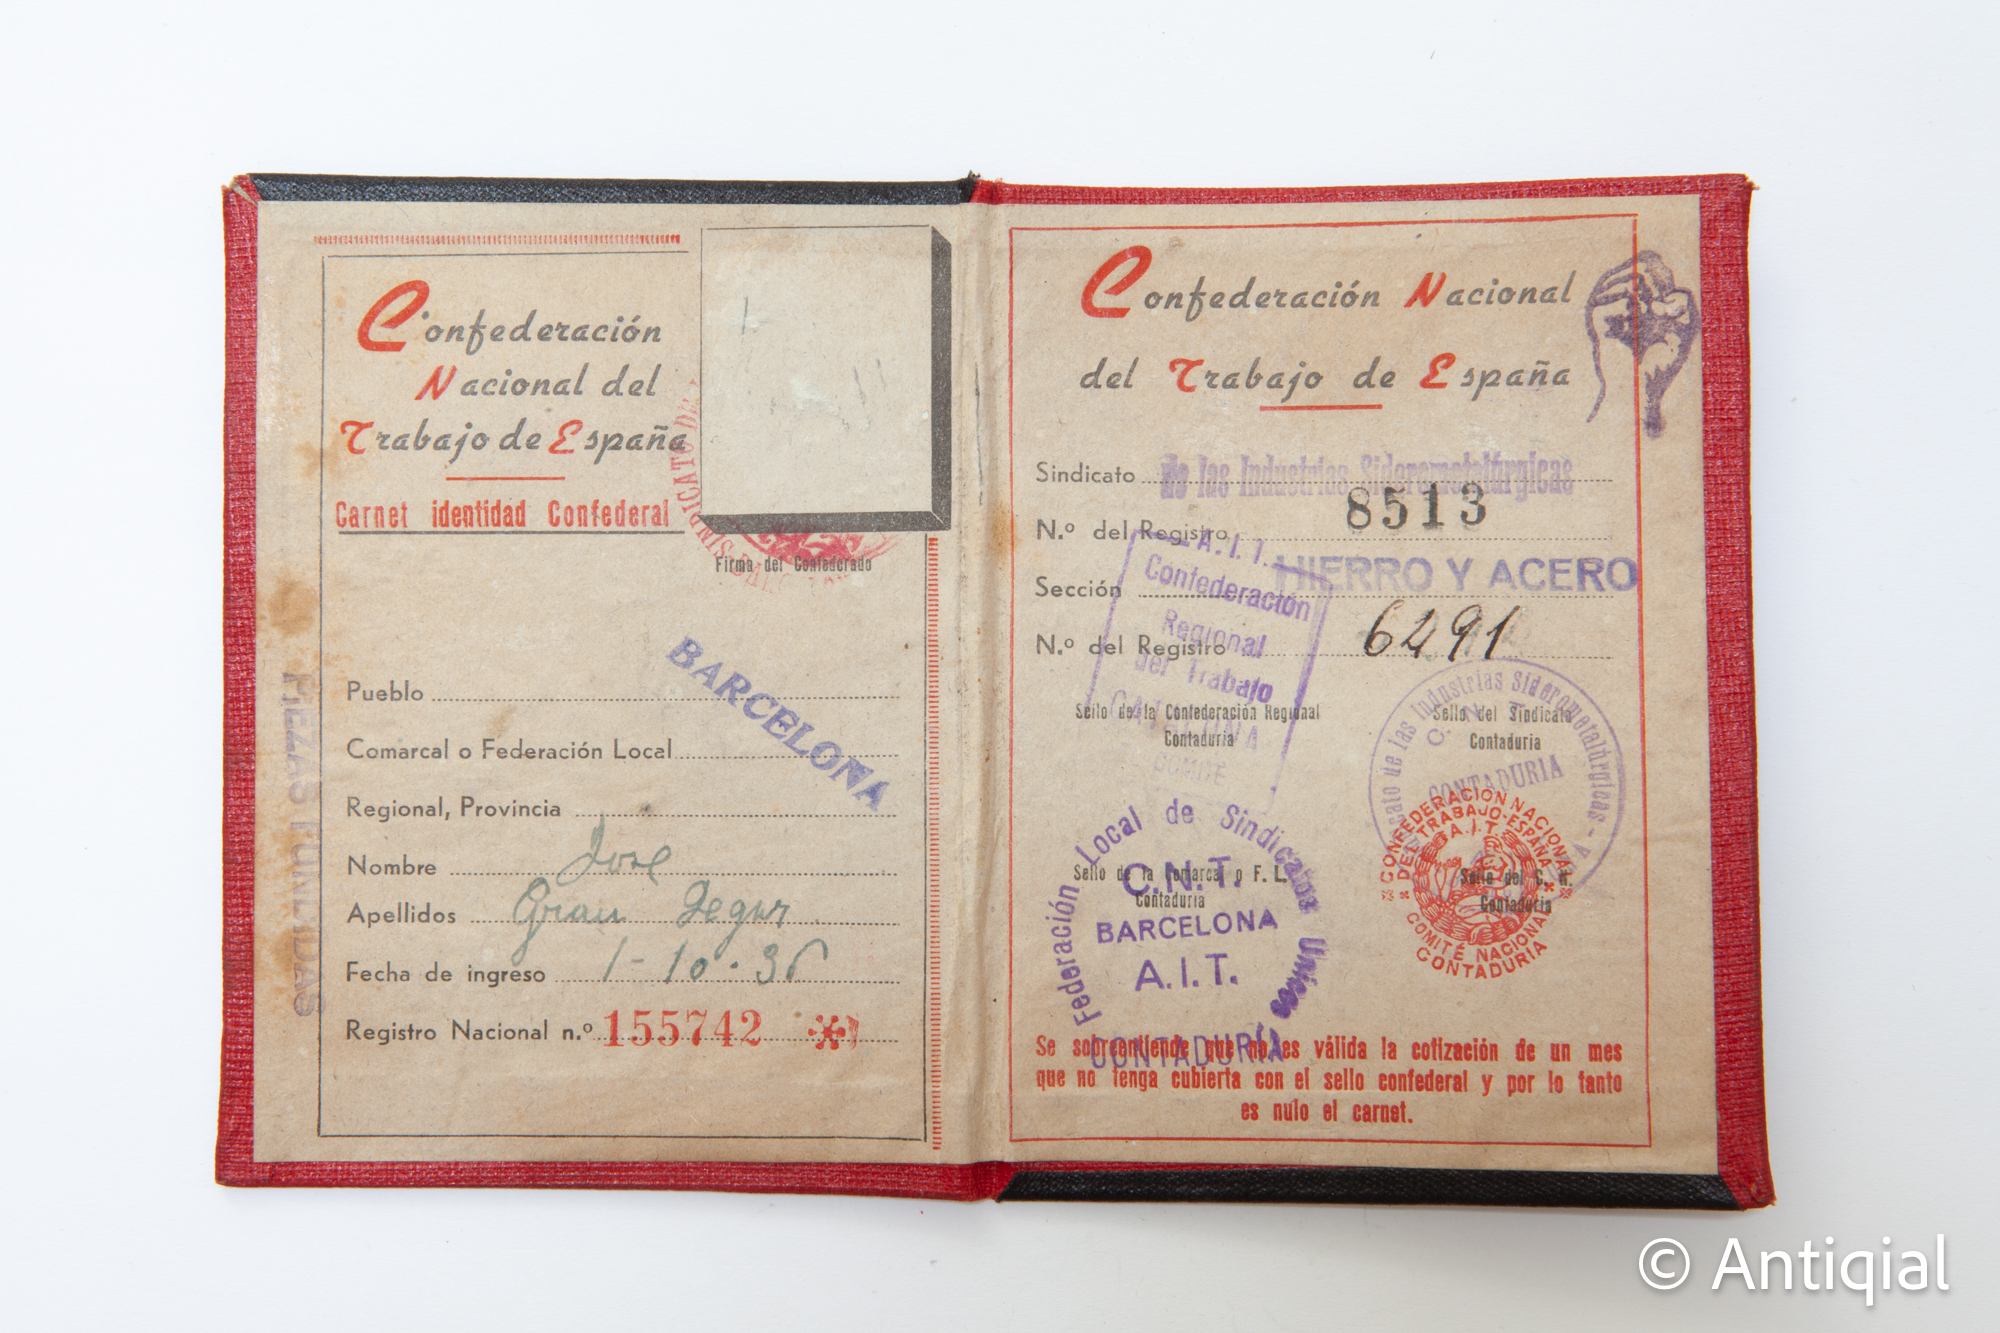 Confederación
Nacional del
Trabajo de España
Carnet identidad Confederal
SINDICATO DE
Firma del Confederado
BARCELONA
PIEZAS FUNDIDAS
Pueblo
Comarcal o Federación Local
Regional, Provincia
Nombre Jose
Apellidos Grau Segur
Fecha de ingreso 1-10-36
Registro Nacional n.º 155742
Confederación Nacional
del Trabajo de España
Sindicato de las Industrias Siderometalúrgicas
N.º del Registro 8513
Sección HIERRO Y ACERO
N.º del Registro 6491
A.I.T.
Confederación
Regional
del Trabajo
CATALUÑA
COMITE
Sello de la Confederación Regional
Contaduria
Sello del Sindicato
Contaduria
Sindicato de las Industrias Siderometalúrgicas
C.N.T.
CONTADURIA
Sello de la Comarcal o F. L.
Contaduria
Federación Local de Sindicatos Unicos
C.N.T.
BARCELONA
A.I.T.
CONTADURÍA
Sello del C. N.
Contaduria
CONFEDERACIÓN NACIONAL
DEL TRABAJO-ESPAÑA
A.I.T.
COMITÉ NACIONAL
CONTADURÍA
Se sobreentiende que no es válida la cotización de un mes
que no tenga cubierta con el sello confederal y por lo tanto
es nulo el carnet.
© Antiqial